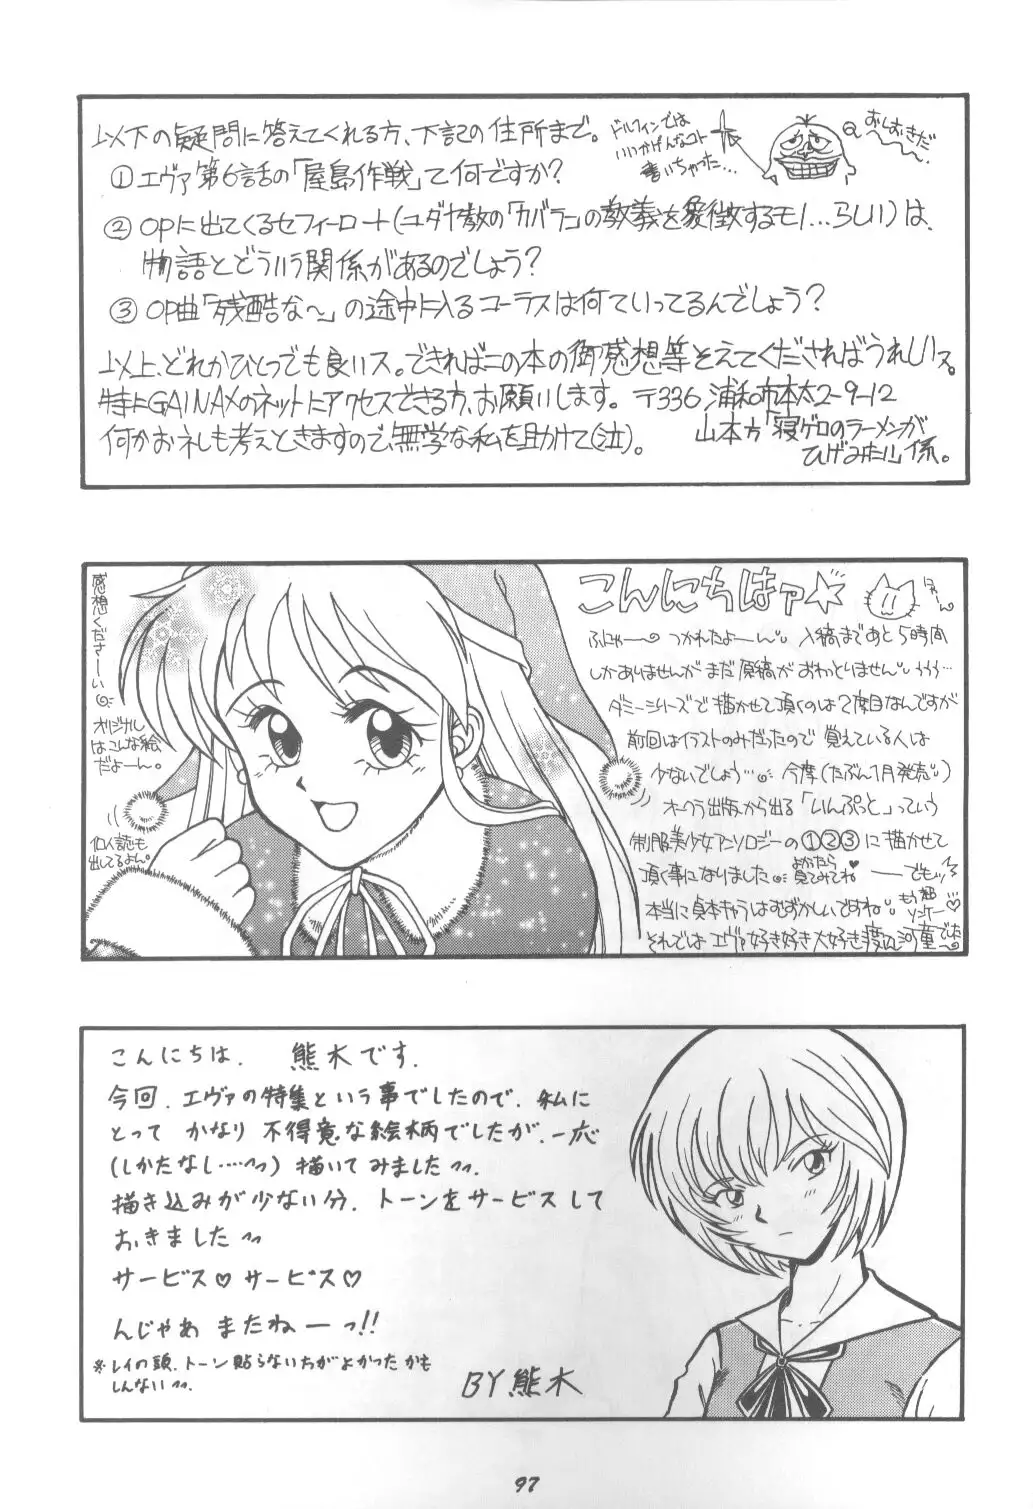 以下の疑問に答えてくれる方、下記の住所まで。
ドルフィンでは
いいかげんなコト
書いちゃった…
おしおきだ〜〜
①エヴァ第6話の「屋島作戦」て何ですか?
②OPに出てくるセフィーロト(ユダヤ教の「カバラ」の教義を象徴するモノ…らしい)は、
物語とどういう関係があるのでしょう?
③OP曲「残酷な〜」の途中に入るコーラスは何ていってるんでしょう?
以上、どれかひとつでも良いス。できればこの本の御感想等そえてくださればうれしいス。
特にGAINAXのネットにアクセスできる方、お願いします。〒336 浦和市本太2-9-12
何かお礼も考えときますので、無学な私を助けて(泣)。
山本方「寝ゲロのラーメンが
ひげみたい」係。
感想くださーーい
オリジナル
はこんな絵
だよーん。
個人誌も
出てるよん。
こんにちはァ☆
ふにゃーー つかれたよーん。入稿まであと5時間
しかありませんがまだ原稿がおわっとりません。ううう…
ダミーシリーズで描かせて頂くのは2度目なんですが
前回はイラストのみだったので覚えている人は
少ないでしょう… 今度(たぶん1月発売)
オークラ出版から出る「いんぷっと」っていう
制服美少女アンソロジーの①②③に描かせて
頂く事になりました よかたら見てみてね♥ーーでもッ
本当に貞本キャラはむずかしいですね。
それではエヴァ好き好き大好き 河童でした
こんにちは. 熊木です.
今回、エヴァの特集という事でしたので、私に
とって かなり 不得意な絵柄でしたが、一応
(しかたなし……^^) 描いてみました^^.
描き込みが少ない分、トーンをサービスして
おきました^^
サービス♡ サービス♡
んじゃあ またねーっ!!
※レイの頭、トーン貼らない方がよかったかも
しんない^^.
BY熊木
97